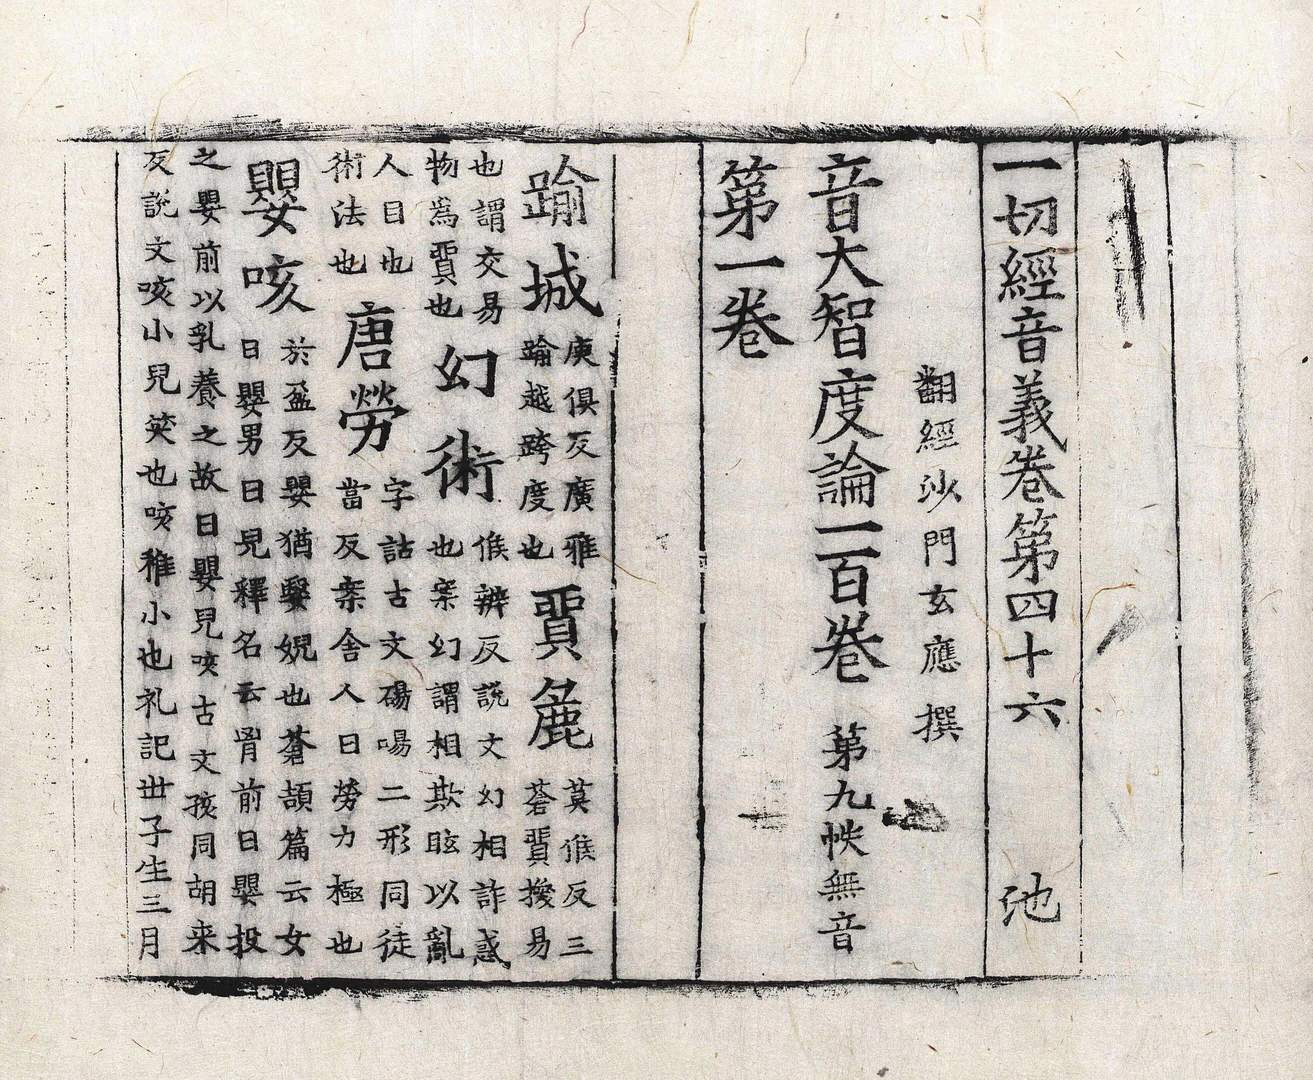 一切經音義卷第四十六 池
翻經沙門玄應撰
音大智度論一百卷 第九帙無音
第一卷
踰城 庾俱反廣雅
踰越跨度也
貿麁 莫候反三
蒼貿換易
也謂交易
物為貿也
幻術 侯辨反說文幻相詐惑
也案幻謂相欺眩以亂
人目也
術法也
唐勞 字詁古文碭啺二形同徒
當反案舍人曰勞力極也
嬰咳 於盈反嬰猶嫛婗也蒼頡篇云女
曰嬰男曰兒釋名云胷前曰嬰投
之嬰前以乳養之故曰嬰兒咳古文孩同胡来
反說文咳小兒笑也咳稚小也礼記世子生三月